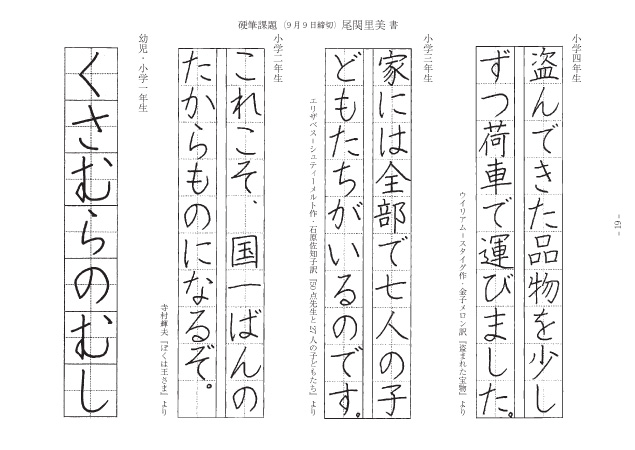 硬筆課題（９月９日締切）尾関里美 書
小学四年生
盗んできた品物を少し
ずつ荷車で運びました。
ウイリアム＝スタイグ作・金子メロン訳『盗まれた宝物』より
小学三年生
家には全部で七人の子
どもたちがいるのです。
エリザベス＝シュティーメルト作・石原佐知子訳『50点先生と27人の子どもたち』より
小学二年生
これこそ、国一ばんの
たからものになるぞ。
寺村輝夫『ぼくは王さま』より
幼児・小学一年生
くさむらのむし
- 19 -